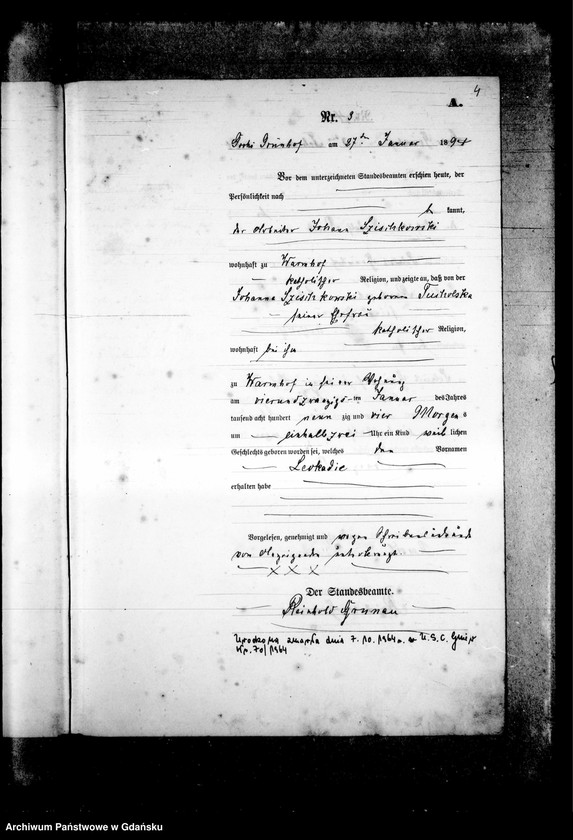 4
A.
Nr. 3
am 27ten Januar 1894
Vor dem unterzeichneten Standesbeamten erschien heute, der
Persönlichkeit nach
be kannt,
der Arbeiter Johann
wohnhaft zu Warmhof
katholischer Religion, und zeigte an, daß von der
Johanna geborenen
seiner Ehefrau
katholischer Religion,
wohnhaft bei ihm
zu Warmhof in seiner Wohnung
am vierundzwanzigs ten Januar des Jahres
tausend acht hundert neun zig und vier Morgens
um Uhr ein Kind weib lichen
Geschlechts geboren worden sei, welches den Vornamen
Leokadie
erhalten habe
Vorgelesen, genehmigt und wegen
vom Anzeigenden
X X X
Der Standesbeamte.
Reinhold Grunau
zmarła dnia 7. 10. 1964 r. w U.S.C.
Nr. 70/1964
Archiwum Państwowe w Gdańsku